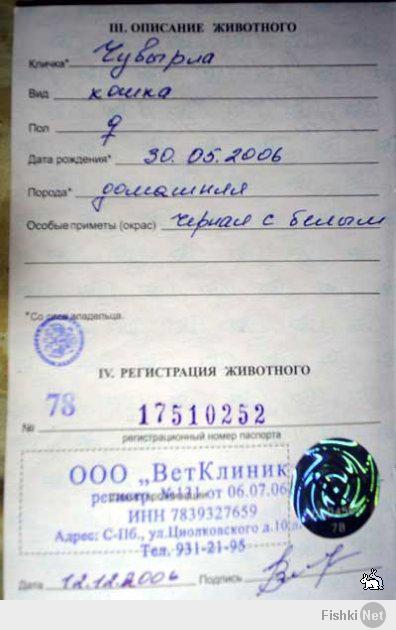 III. ОПИСАНИЕ ЖИВОТНОГО
Кличка* Чувырла
Вид кошка
Пол ♀
Дата рождения* 30.05.2006
Порода* домашняя
Особые приметы (окрас) черная с белым
*Со слов владельца.
IV. РЕГИСТРАЦИЯ ЖИВОТНОГО
78
№ 17510252
регистрационный номер паспорта
ООО „ВетКлиник
регистр. от 06.07.06
ИНН 7839327659
Адрес: С-Пб., ул.Циолковского д.10
Тел. 931-21-95
78
Дата 12.12.2006 Подпись
Fishki.Net